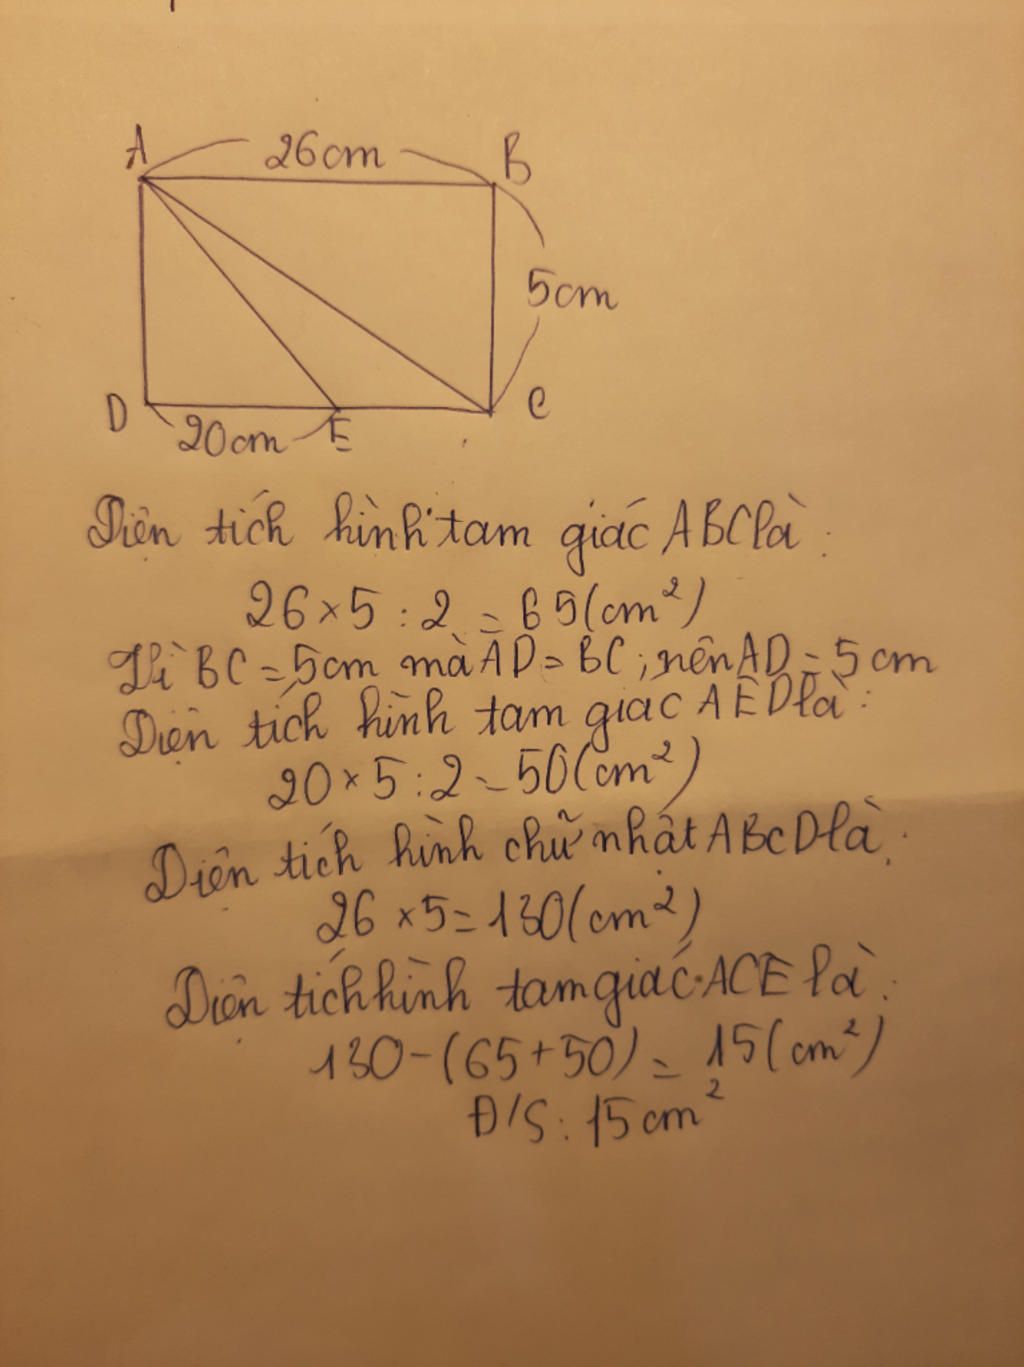 A 26cm B
5cm
D 20cm E C
Diện tích hình tam giác ABC là:
26 × 5 : 2 = 65 (cm²)
Vì BC = 5cm mà AD = BC; nên AD = 5cm
Diện tích hình tam giác AED là:
20 × 5 : 2 = 50 (cm²)
Diện tích hình chữ nhật ABCD là:
26 × 5 = 130 (cm²)
Diện tích hình tam giác ACE là:
130 - (65 + 50) = 15 (cm²)
Đ/S: 15cm²